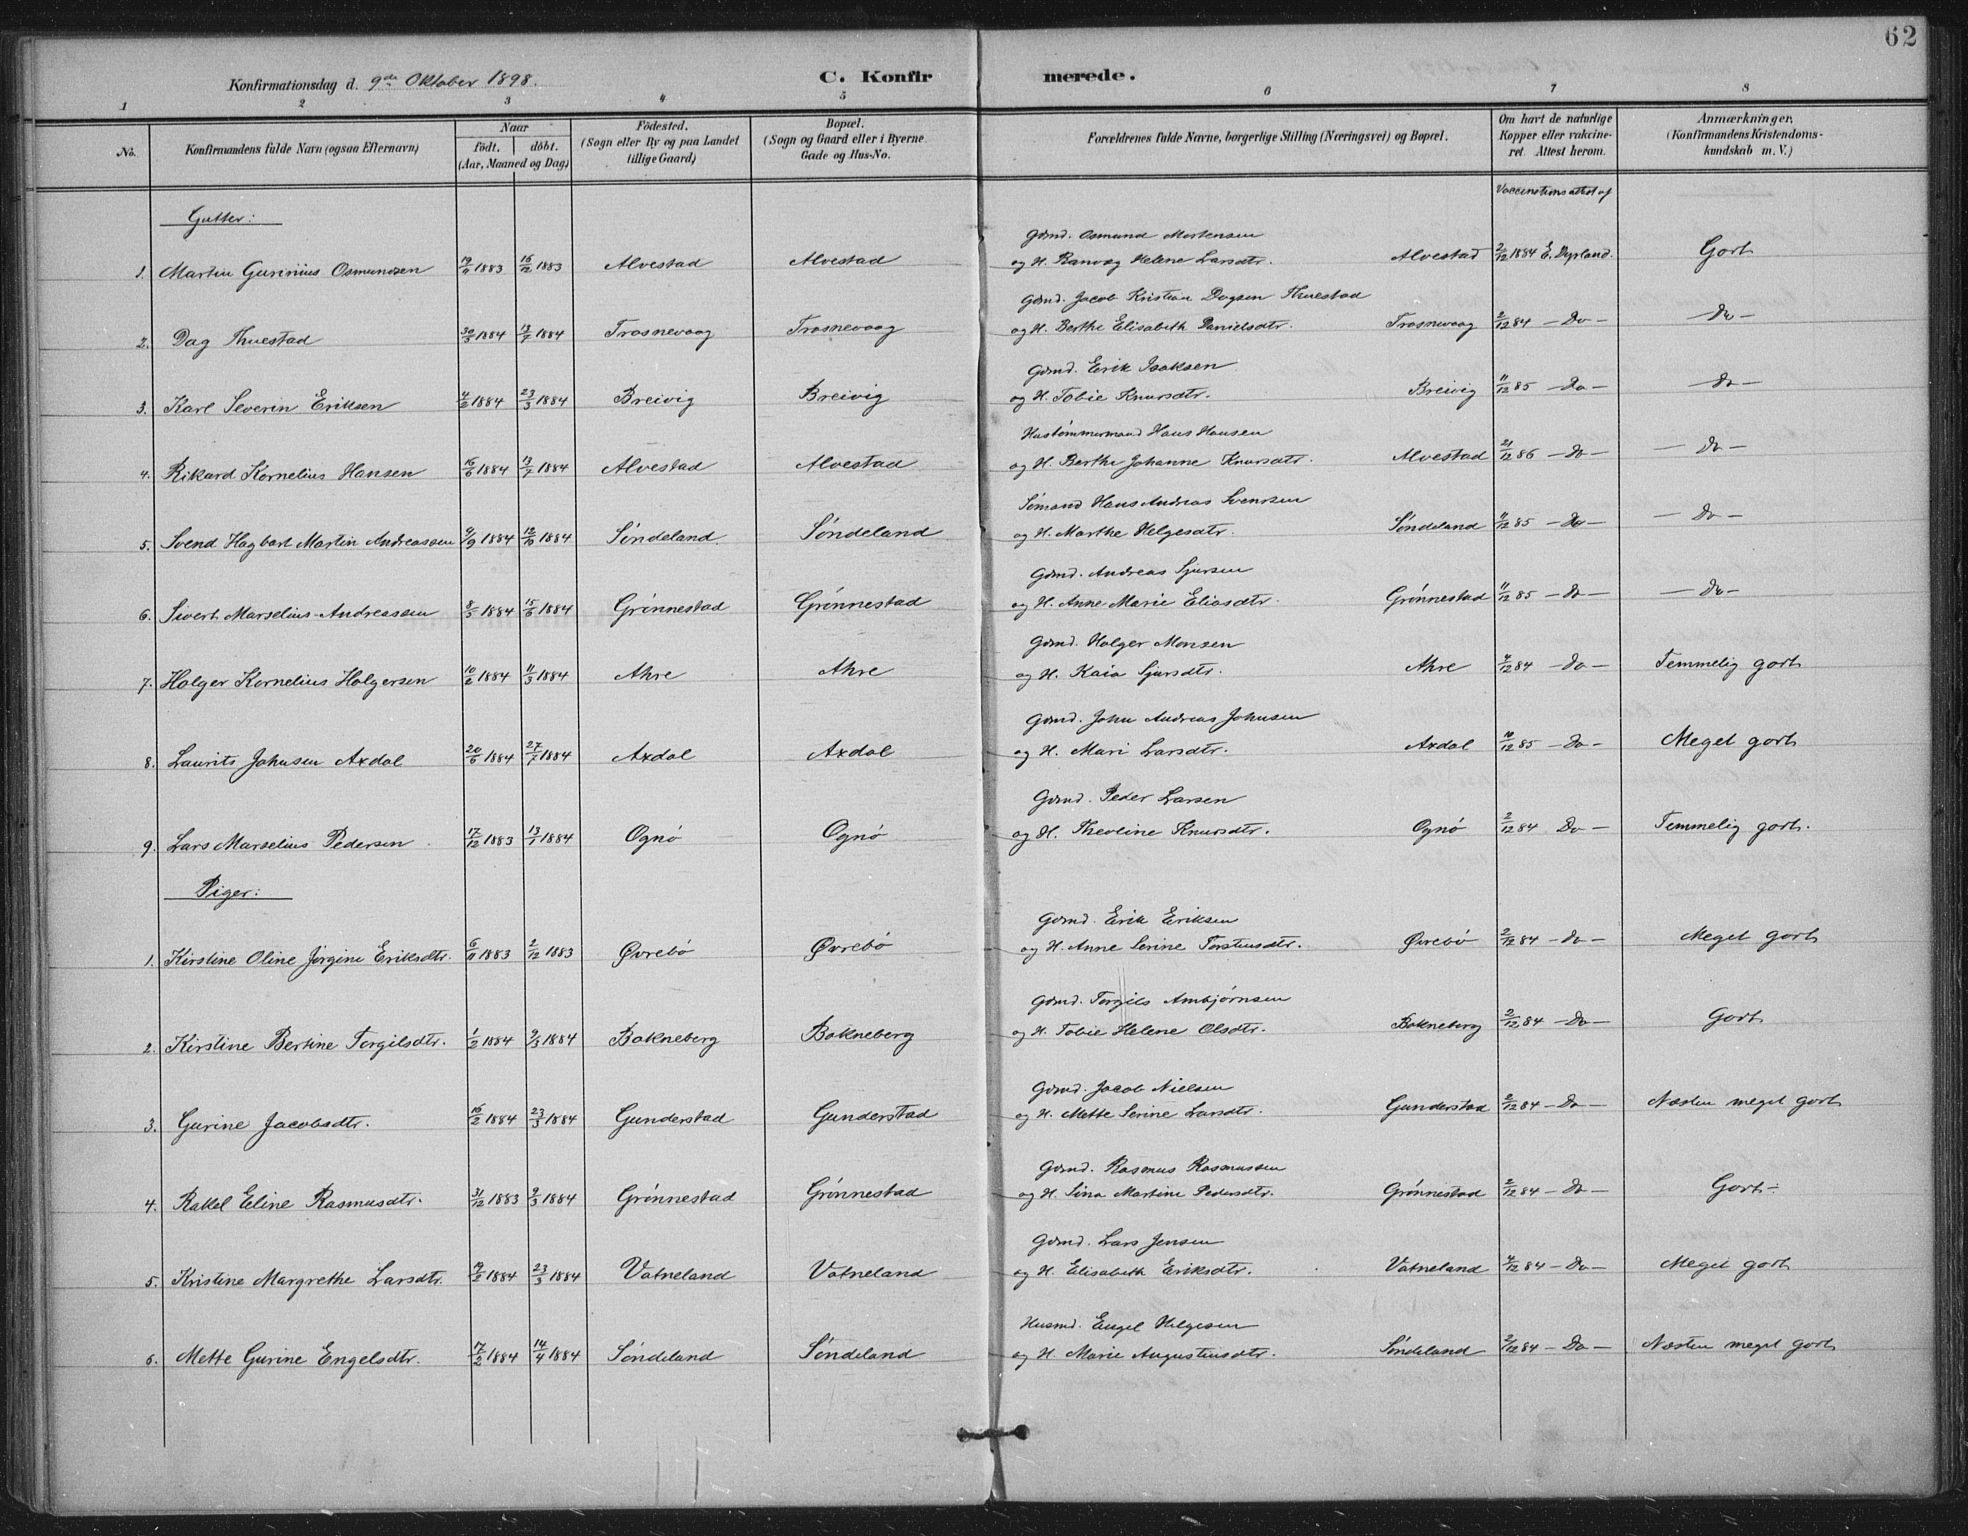 62
Konfirmationsdag d. 9de Oktober 1898. C. Konfirmerede.
1 2 3 4 5 6 7 8
No. Konfirmandens fulde Navn (ogsaa Efternavn) Naar født. døbt. (Aar, Maaned og Dag) Fødested. (Sogn eller By og paa Landet tillige Gaard) Bopæl. (Sogn og Gaard eller i Byerne Gade og Hus-No. Forældrenes fulde Navne, borgerlige Stilling (Næringsvei) og Bopæl. Om havt de naturlige Kopper eller vakcineret. Attest herom. Anmærkninger. (Konfirmandens Kristendomskundskab m. V.)
Vaccinationsattest af
Gutter:
Gbmd. Osmund Mortensen
1. Martin Gurinius Osmundsen 19/11 1883 16/12 1883 Alvestad Alvestad og H. Ranveg Helene Larsdtr. Alvestad 2/12 1884 E. Dyrland. Godt
Gbmd. Jacob Kristian Dagsen Thuestad
2. Dag Thuestad 30/5 1884 13/7 1884 Trosnevaag Trosnevaag og H. Berthe Elisabeth Danielsdtr. Trosnevaag 2/12 84 – Do – – Do –
Gbmd. Erik Isaksen
3. Karl Severin Eriksen 4/2 1884 23/3 1884 Breivig Breivig og H. Tobie Knudsdtr. Breivig 11/12 85 – Do – – Do –
Hustømmermand Hans Hansen
4. Rikard Kornelius Hansen 16/6 1884 13/7 1884 Alvestad Alvestad og H. Berthe Johanne Knudsdtr. Alvestad 21/12 86 – Do – – Do –
Sømand Hans Andreas Svendsen
5. Svend Hagbart Martin Andreassen 9/9 1884 12/10 1884 Søndeland Søndeland og H. Marthe Helgesdtr. Søndeland 11/12 85 – Do – – Do –
Gbmd. Andreas Sjursen
6. Sivert Marselius Andreassen 8/5 1884 15/6 1884 Grønnestad Grønnestad og H. Anne Marie Eliasdtr. Grønnestad 11/12 85 – Do – – Do –
Gbmd. Holger Monsen
7. Holger Kornelius Holgersen 10/2 1884 11/3 1884 Ahre Ahre og H. Kaia Sjursdtr. Ahre 4/12 84 – Do – Temmelig godt
Gbmd. John Andreas Johnsen
8. Laurits Johnsen Axdal 20/6 1884 27/7 1884 Axdal Axdal og H. Mari Larsdtr. Axdal 10/12 85 – Do – Meget godt
Gbmd. Peder Larsen
9. Lars Marselius Pedersen 17/12 1883 13/1 1884 Ognø Ognø og H. Theoline Knudsdtr. Ognø 2/12 84 Do – Temmelig godt.
Piger:
Gbmd. Erik Eriksen
1. Kirstine Oline Jørgine Eriksdtr. 6/11 1883 2/12 1883 Øvrebø Øvrebø og H. Anne Serine Torstensdtr. Øvrebø 2/12 84 – Do – Meget godt
Gbmd. Torgils Ambjørnsen
2. Kirstine Bertine Torgilsdtr. 1/2 1884 9/3 1884 Bokneberg Bokneberg og H. Tobie Helene Olsdtr. Bokneberg 2/12 84 – Do – Godt
Gbmd. Jacob Nielsen
3. Gurine Jacobsdtr. 16/2 1884 23/3 1884 Gunderstad Gunderstad og H. Mette Serine Larsdtr. Gunderstad 2/12 84 – Do Næsten meget godt
Gbmd. Rasmus Rasmussen
4. Rakel Eline Rasmusdtr. 31/12 1883 9/3 1884 Grønnestad Grønnestad og H. Sina Martine Pedersdtr. Grønnestad 2/12 84 – Do – Godt
Gbmd. Lars Jensen
5. Kristine Margrethe Larsdtr. 19/2 1884 23/3 1884 Vatneland Vatneland og H. Elisabeth Eriksdtr. Vatneland 4/12 84 – Do – Meget godt
Husmd. Engel Helgesen
6. Mette Gurine Engelsdtr. 17/2 1884 14/4 1884 Søndeland Søndeland og H. Marie Augustinsdtr. Søndeland 2/12 84 – Do – Næsten meget godt